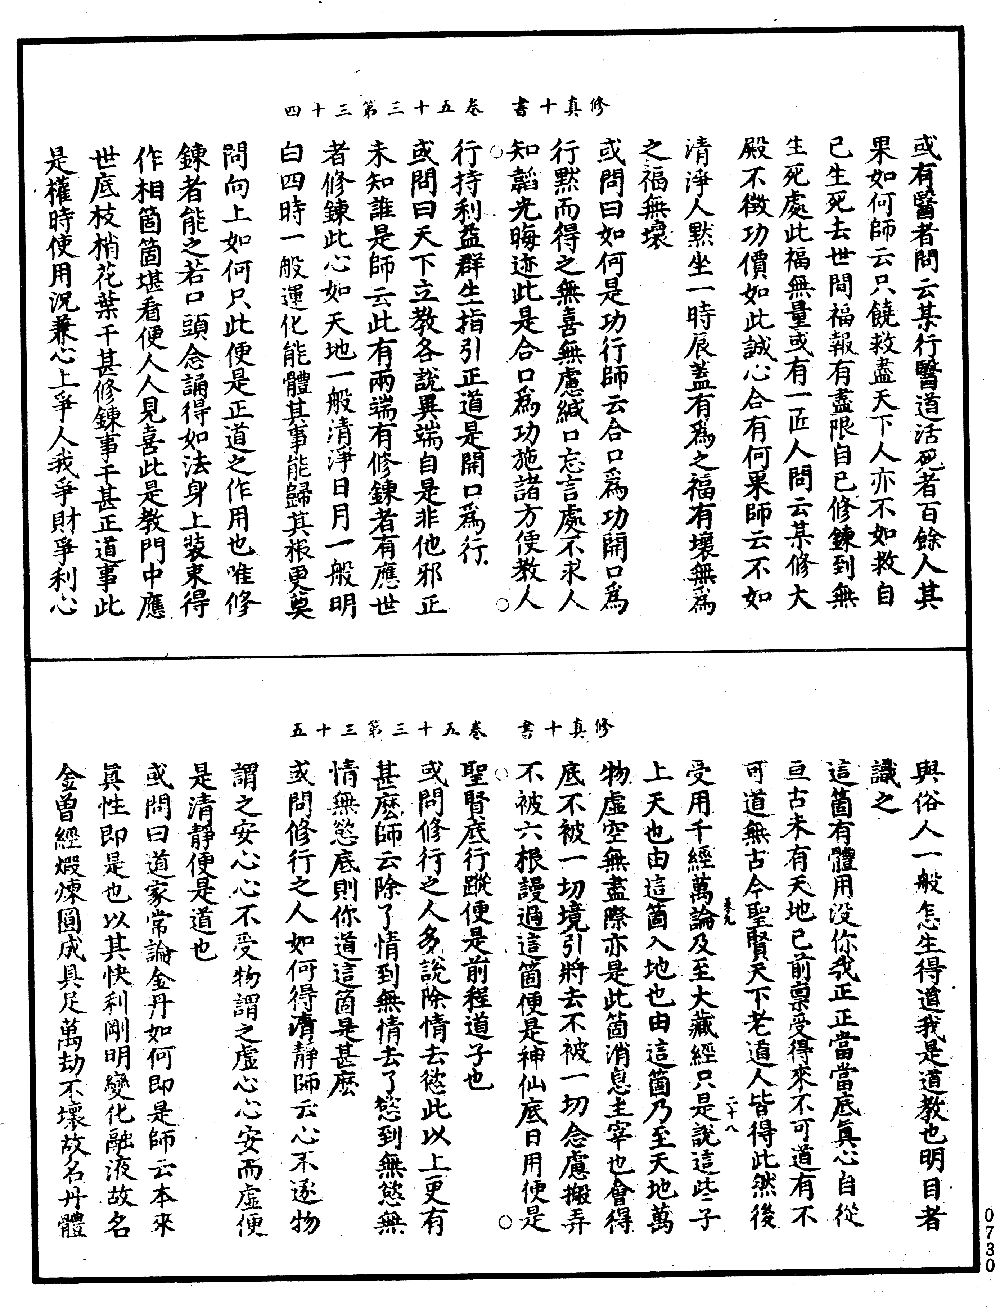 修真十書　卷五十三第三十四
或有醫者問云某行醫道活死者百餘人其
果如何師云只饒救盡天下人亦不如救自
己生死去世間福報有盡限自己修鍊到無
生死處此福無量或有一匠人問云某修大
殿不徵功價如此誠心合有何果師云不如
清淨人默坐一時辰蓋有爲之福有壞無爲
之福無壞
或問曰如何是功行師云合口爲功開口爲
行默而得之無喜無慮緘口忘言處不求人
知韜光晦迹此是合口爲功施諸方便教人
行持利益群生指引正道是開口爲行
或問曰天下立教各說異端自是非他邪正
未知誰是師云此有兩端有修鍊者有應世
者修鍊此心如天地一般清淨日月一般明
白四時一般運化能體其事能歸其根更奠
問向上如何只此便是正道之作用也唯修
鍊者能之若口頭念誦得如法身上裝束得
作相箇箇堪看便人人見喜此是教門中應
世底枝梢花葉干甚修鍊事干甚正道事此
是權時使用況兼心上爭人我爭財爭利心
修真十書　卷五十三第三十五
與俗人一般怎生得道我是道教也明目者
識之
這箇有體用没你我正正當當底真心自從
亘古未有天地已前禀受得來不可道有不
可道無古今聖賢天下老道人皆得此然後
受用千經萬論及至大藏經只是說這些子
上天也由這箇入地也由這箇乃至天地萬
物虛空無盡際亦是此箇消息主宰也會得
底不被一切境引將去不被一切念慮搬弄
不被六根謾過這箇便是神仙底日用便是
聖賢底行蹤便是前程道子也
或問修行之人多說除情去慾此以上更有
甚麽師云除了情到無情去了慾到無慾無
情無慾底則你道這箇是甚麽
或問修行之人如何得清靜師云心不逐物
謂之安心心不受物謂之虛心心安而虛便
是清靜便是道也
或問曰道家常論金丹如何即是師云本來
真性即是也以其快利剛明變化融液故名
金曾經煆煉圓成具足萬劫不壞故名丹體
二十八
0730